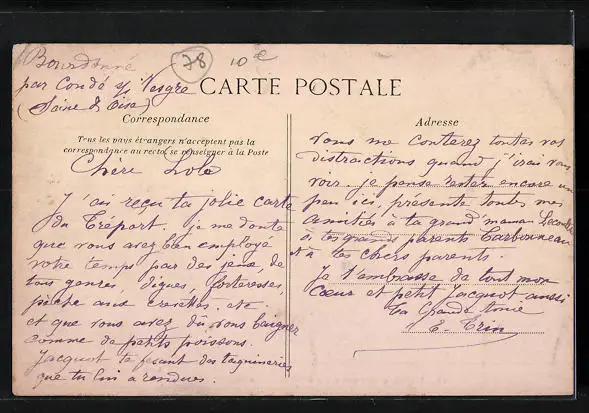 Bourdonné
par Condé s/ Vesgre
(Seine & Oise)
78
10 €
CARTE POSTALE
Correspondance
Tous les pays étrangers n'acceptent pas la
correspondance au recto, se renseigner à la Poste
Chère Lole
J'ai reçu ta jolie carte
du Tréport. je me doute
que vous avez bien employé
votre temps par des jeux, de
tous genres, digues, forteresses,
pêche aux crevettes. etc.
et que vous avez dû vous baigner
comme de petits poissons.
Jacquot te faisant des taquineries
que tu lui a rendues.
Adresse
Vous me conterez toutes vos
distractions quand j'irai vous
voir. je pense rester encore un
peu ici, présente toutes mes
amitiés à ta grand'maman
à tes grands parents Carbonneau
et à tes chers parents.
Je t'embrasse de tout mon
Cœur et petit Jacquot aussi
ta Grande Amie
E.